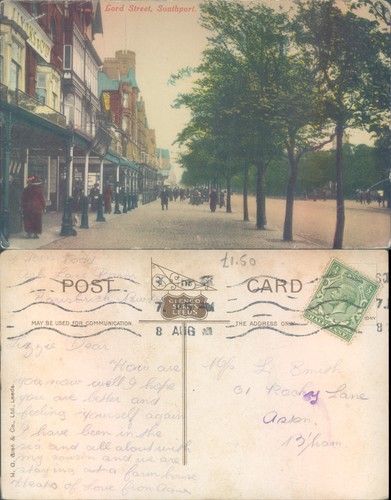 Lord Street, Southport.
£1.50
POST CARD
GLENCO
SERIES
LEEDS
MAY BE USED FOR COMMUNICATION
THE ADDRESS ONLY
8 AUG
Dear
How are
you now well I hope
you are better and
feeling yourself again
I have been in the
sea and all about with
my cousin and we are
staying at a farm house
Heaps of love from
Mrs L. Smith
61 Rocky Lane
Aston
B'ham.
Co., Ltd., Leeds.